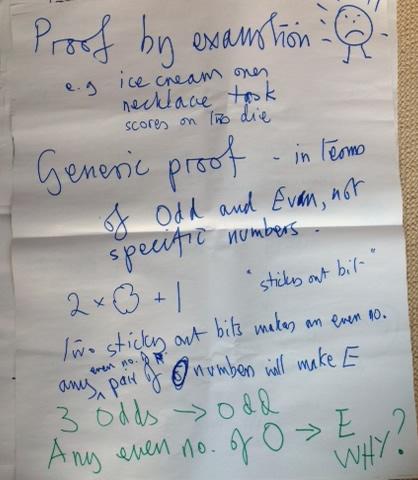 Proof by exaustion
e.g ice cream ones
necklace task
scores on two die
Generic proof - in terms
of Odd and Even, not
specific numbers.
2 x + 1
"sticky out bit"
Two sticky out bits makes an even no.
even no. of
any pair of O numbers will make E
3 Odds → Odd
Any even no. of O → E
WHY?